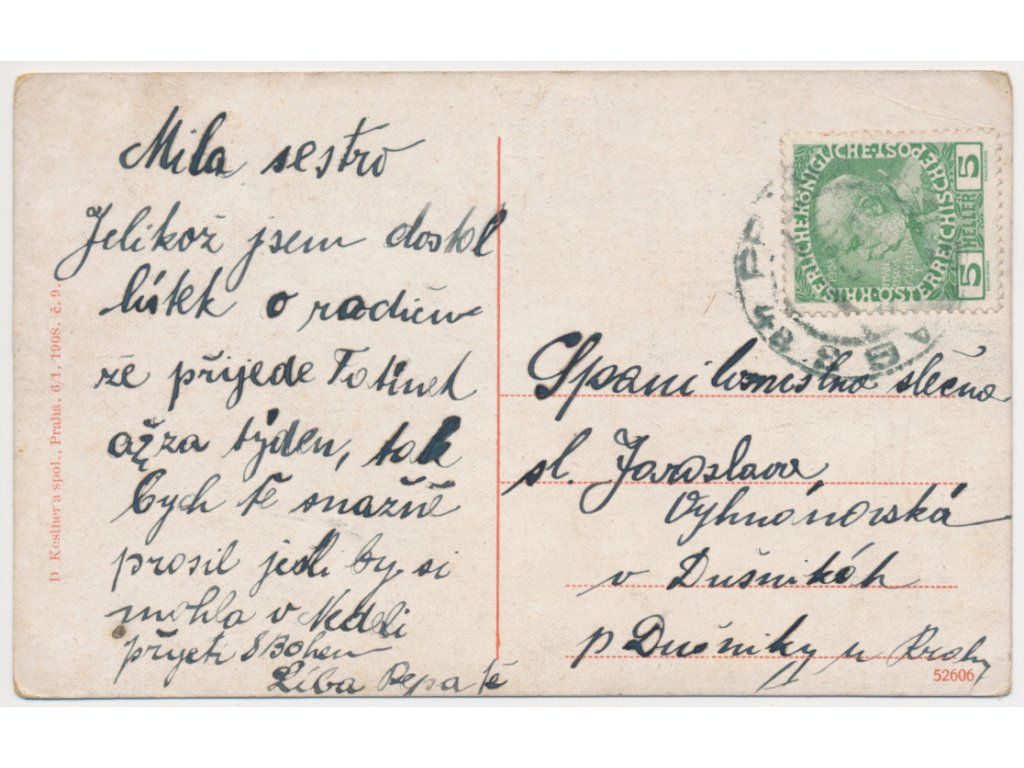 Mila sestro
Jelikož jsem dostal
lístek o radičů
že přijede Tatínek
až za týden, tak
bych tě snažně
prosil jesli by si
mohla v Neděli
přijeti S Bohem
Líbá Pepa tě
D. Kosiner a spol., Praha. 6/1. 1908. č. 9.
KAISERLICHE KÖNIGLICHE ÖSTERREICHISCHE POST
5 HELLER 5
slečna
sl. Jaroslava
Vyhnánovská
v Dušníkách
p Dušníky u Prahy
52606